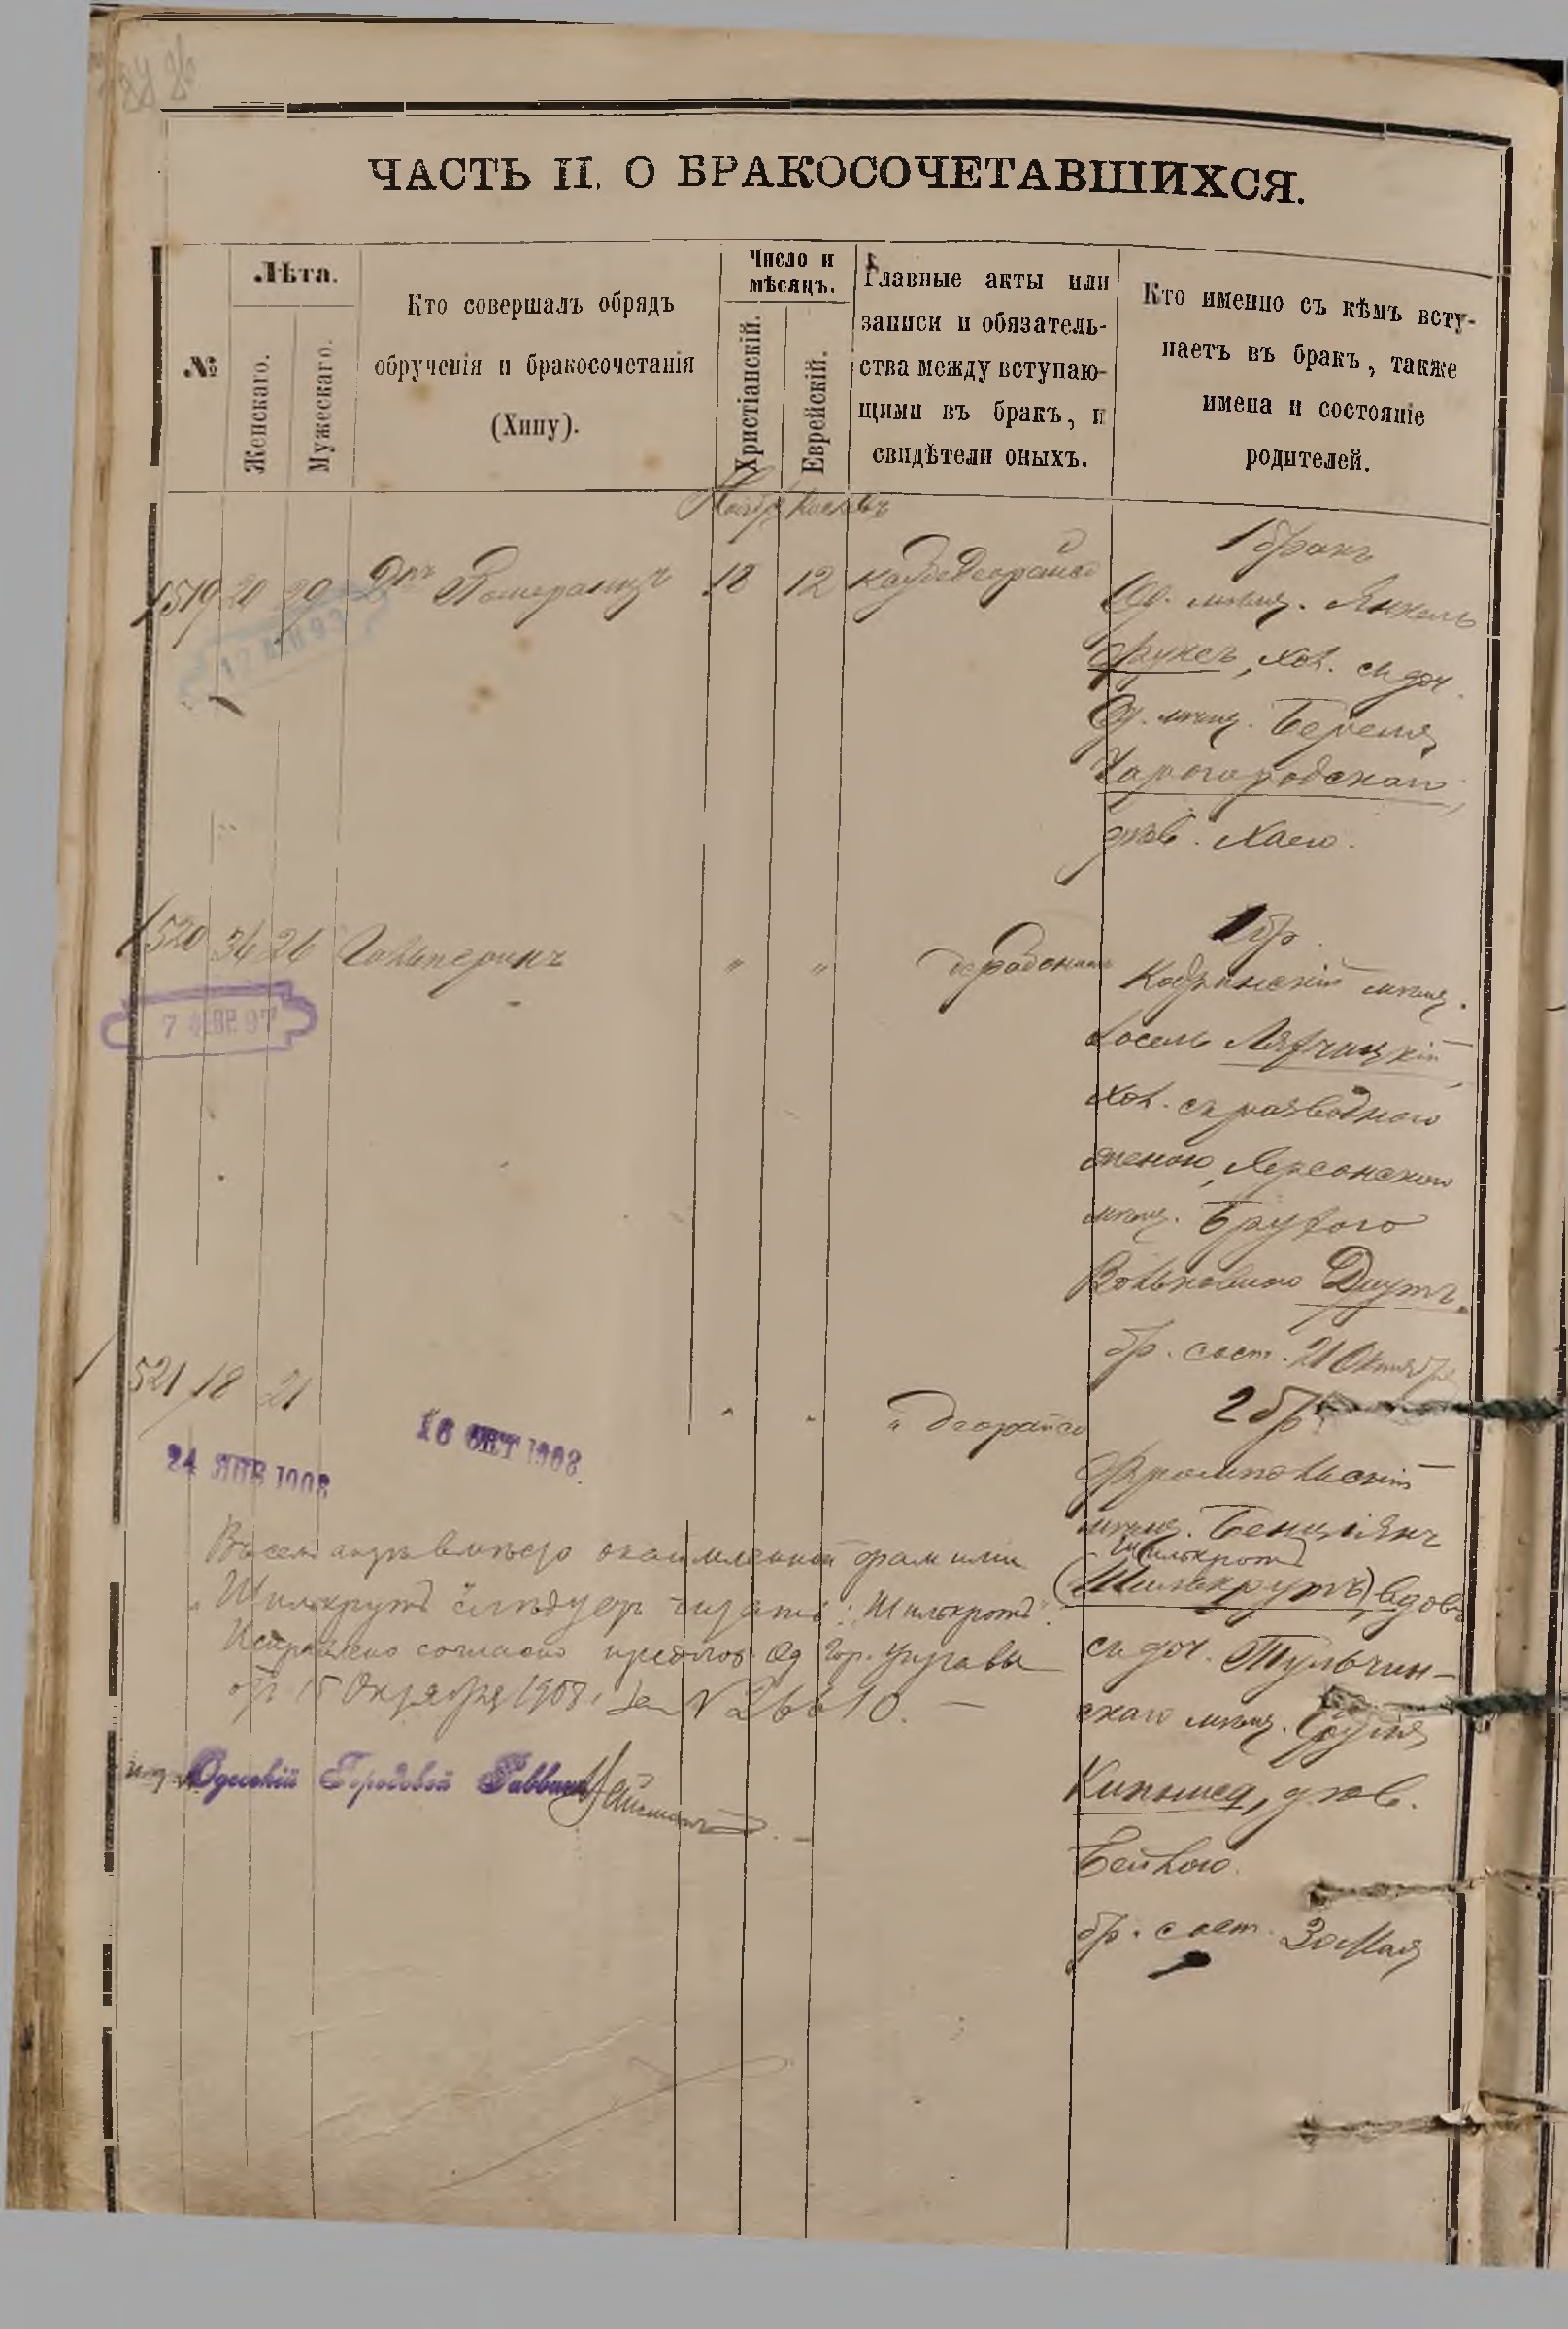 ЧАСТЬ II. О БРАКОСОЧЕТАВШИХСЯ.
№
Лѣта.
Женскаго.
Мужескаго.
Кто совершалъ обрядъ
обрученія и бракосочетанія
(Хипу).
Число и
мѣсяцъ.
Христіанскій.
Еврейскій.
Главные акты или
записи и обязатель-
ства между вступаю-
щими въ бракъ, и
свидѣтели оныхъ.
Кто именно съ кѣмъ всту-
паетъ въ бракъ, также
имена и состояніе
родителей.
Ноябр. Кислевъ
519 20 29 Померанцъ 18 12
1 бракъ
Од. мѣщ. Янкель
Фуксъ, хол. съ доч.
Од. мѣщ. Береля
Чарногородскаго,
дѣв. Хаею.
520 36 26 Гальперинъ " "
1 бр.
Кобринскій мѣщ.
Іосель Ляхчицкій
хол. съ разводною
женою, Херсонскаго
мѣщ. Брухою
Вольковною
бр. сост. 21 Октября
7 ФЕВР. 97
521 18 21 " "
24 ЯНВ 1908
16 ОКТ 1908
2 бр.
мѣщ. Бенціянъ
Шилькротъ
(Шилькрутъ) вдов.
съ доч. Тульчин-
скаго мѣщ.
Кипнисъ, дѣв.
Бейлою.
бр. сост. 30 Мая
Въ семъ актѣ вмѣсто фамиліи
"Шилькрутъ" слѣдуетъ читать: "Шилькротъ".
Исправлено согласно предлож. Од. Гор. Управы
отъ 15 Октября 1908 г. за № 26610. —
Одесскій Городовой Раввинъ